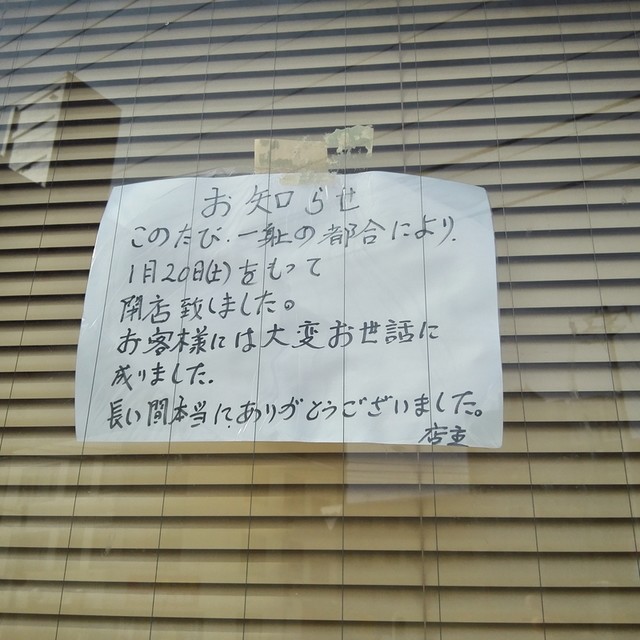 お知らせ
このたび、一身上の都合により、
1月20日(土)をもって
閉店致しました。
お客様には大変お世話に
成りました。
長い間本当にありがとうございました。
店主